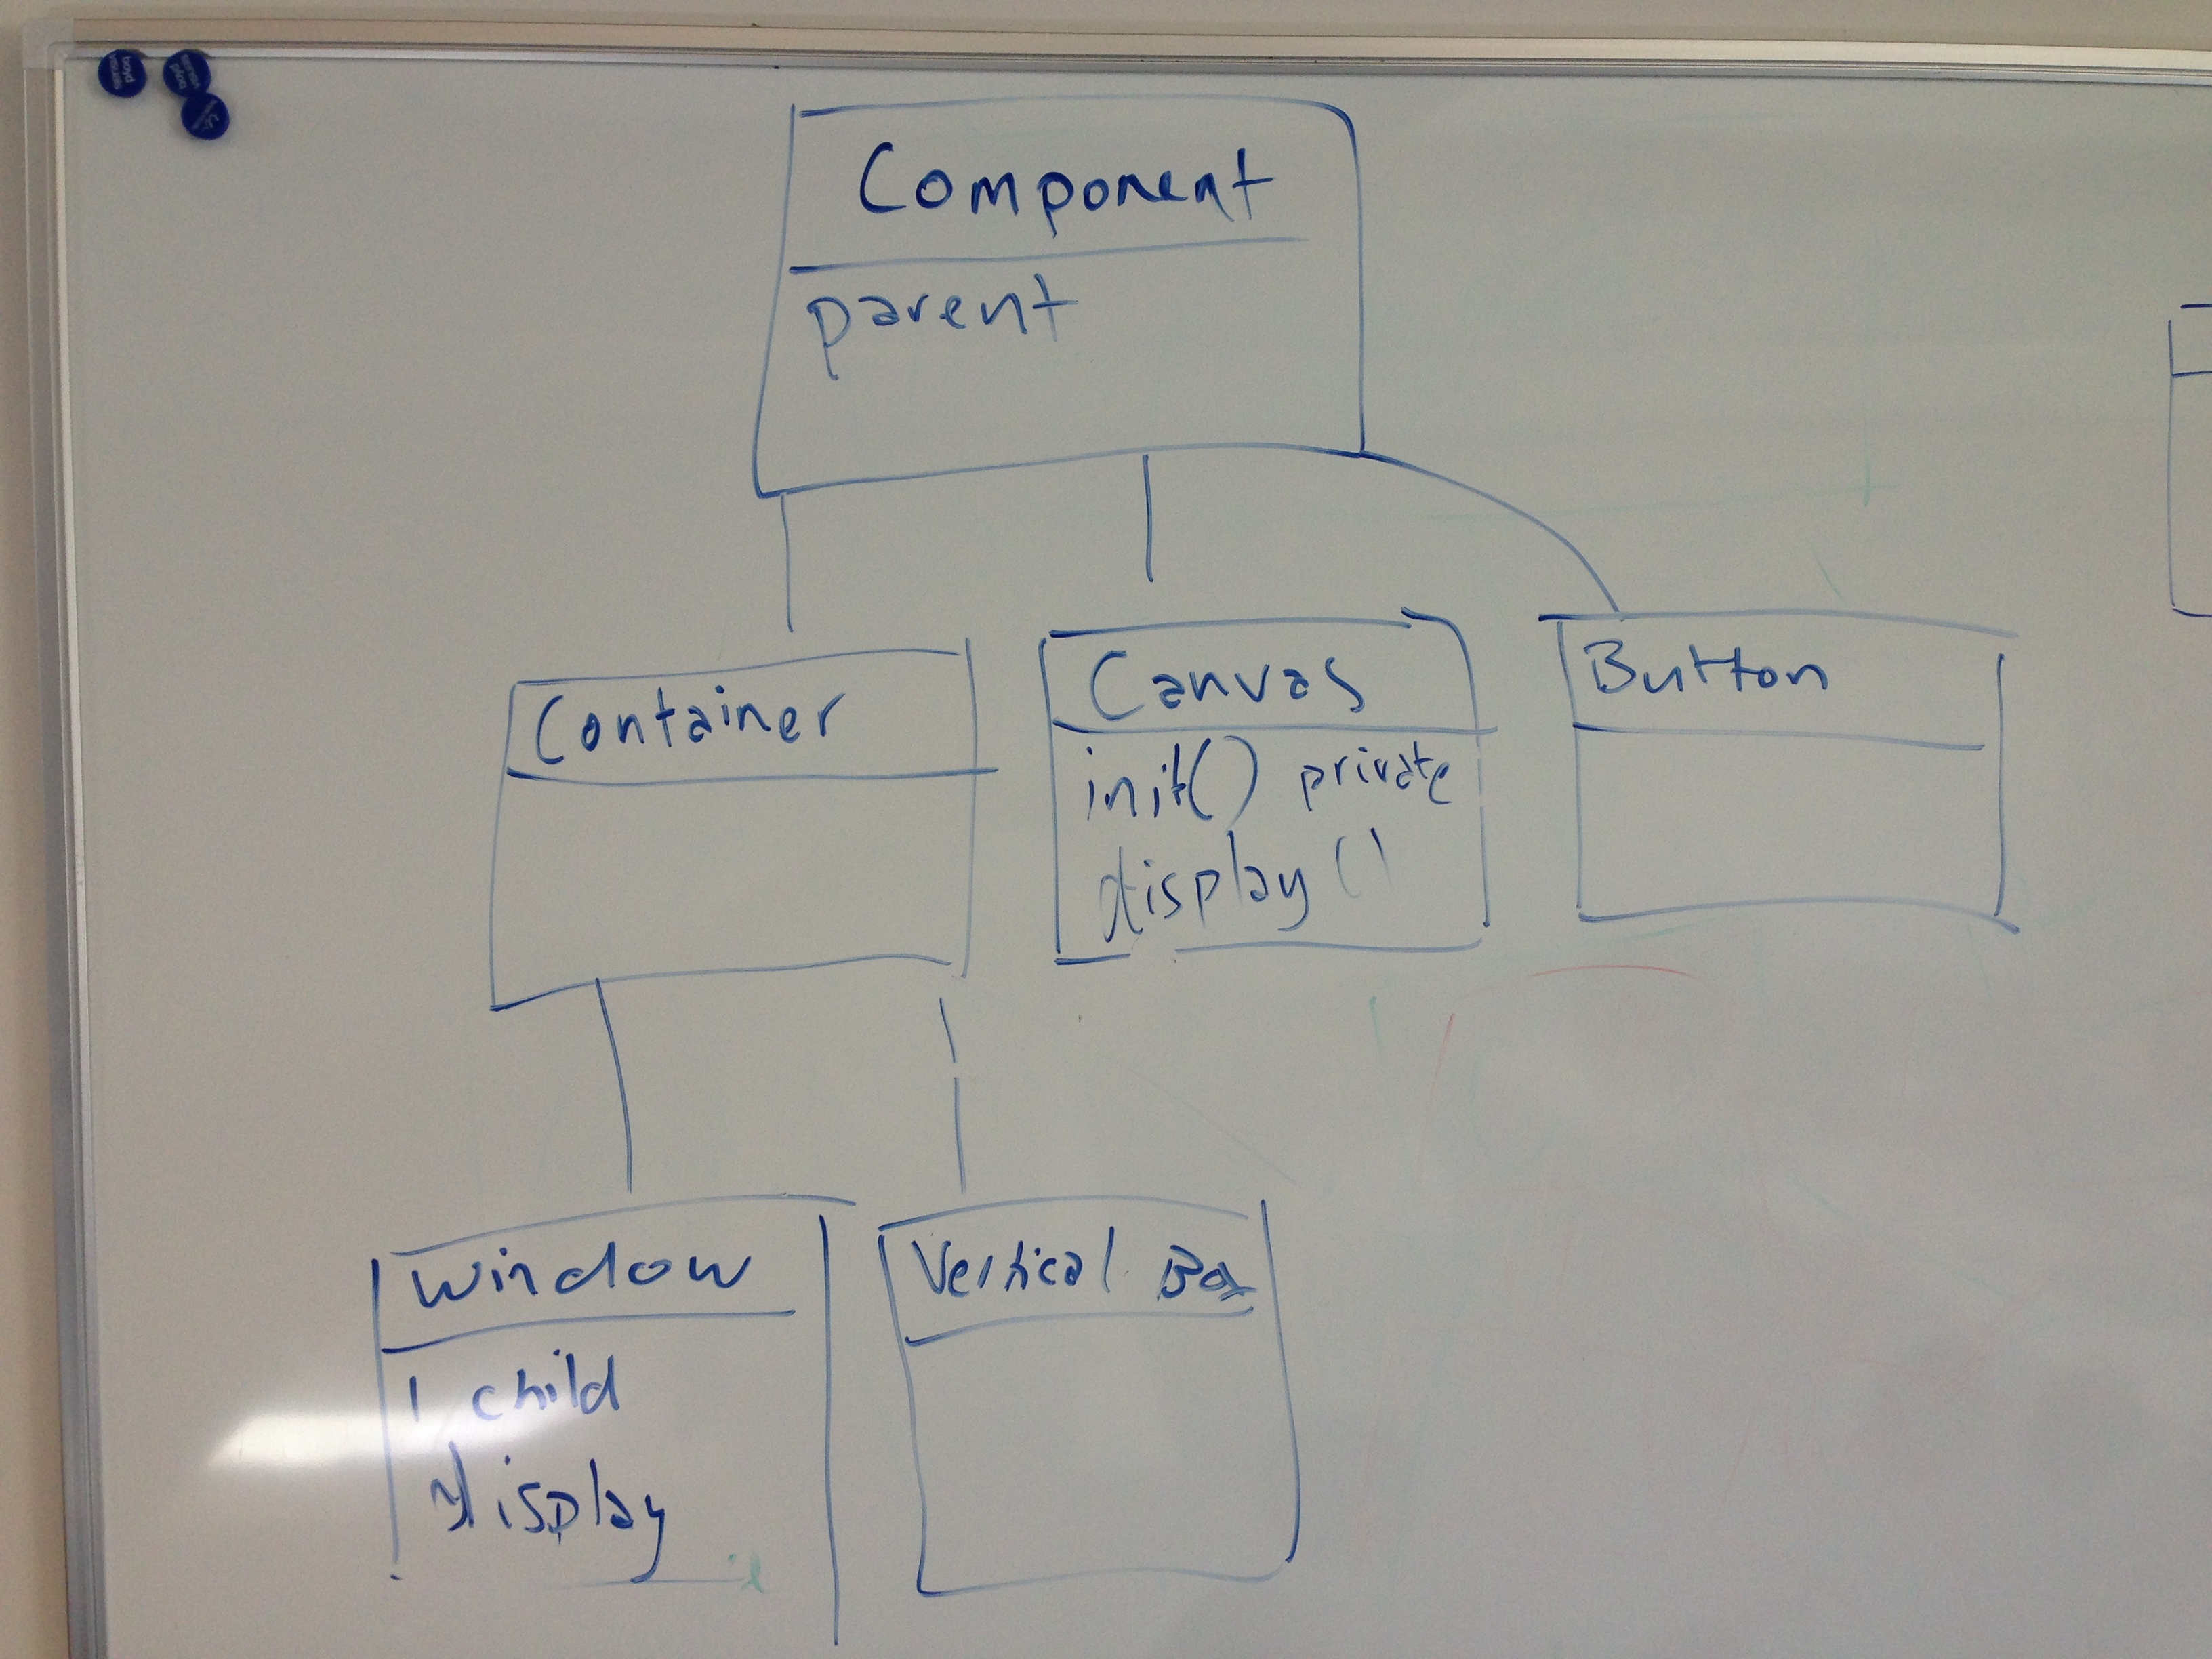 Component
parent
Container
Canvas
init() private
display()
Button
Window
1 child
display
Vertical Box